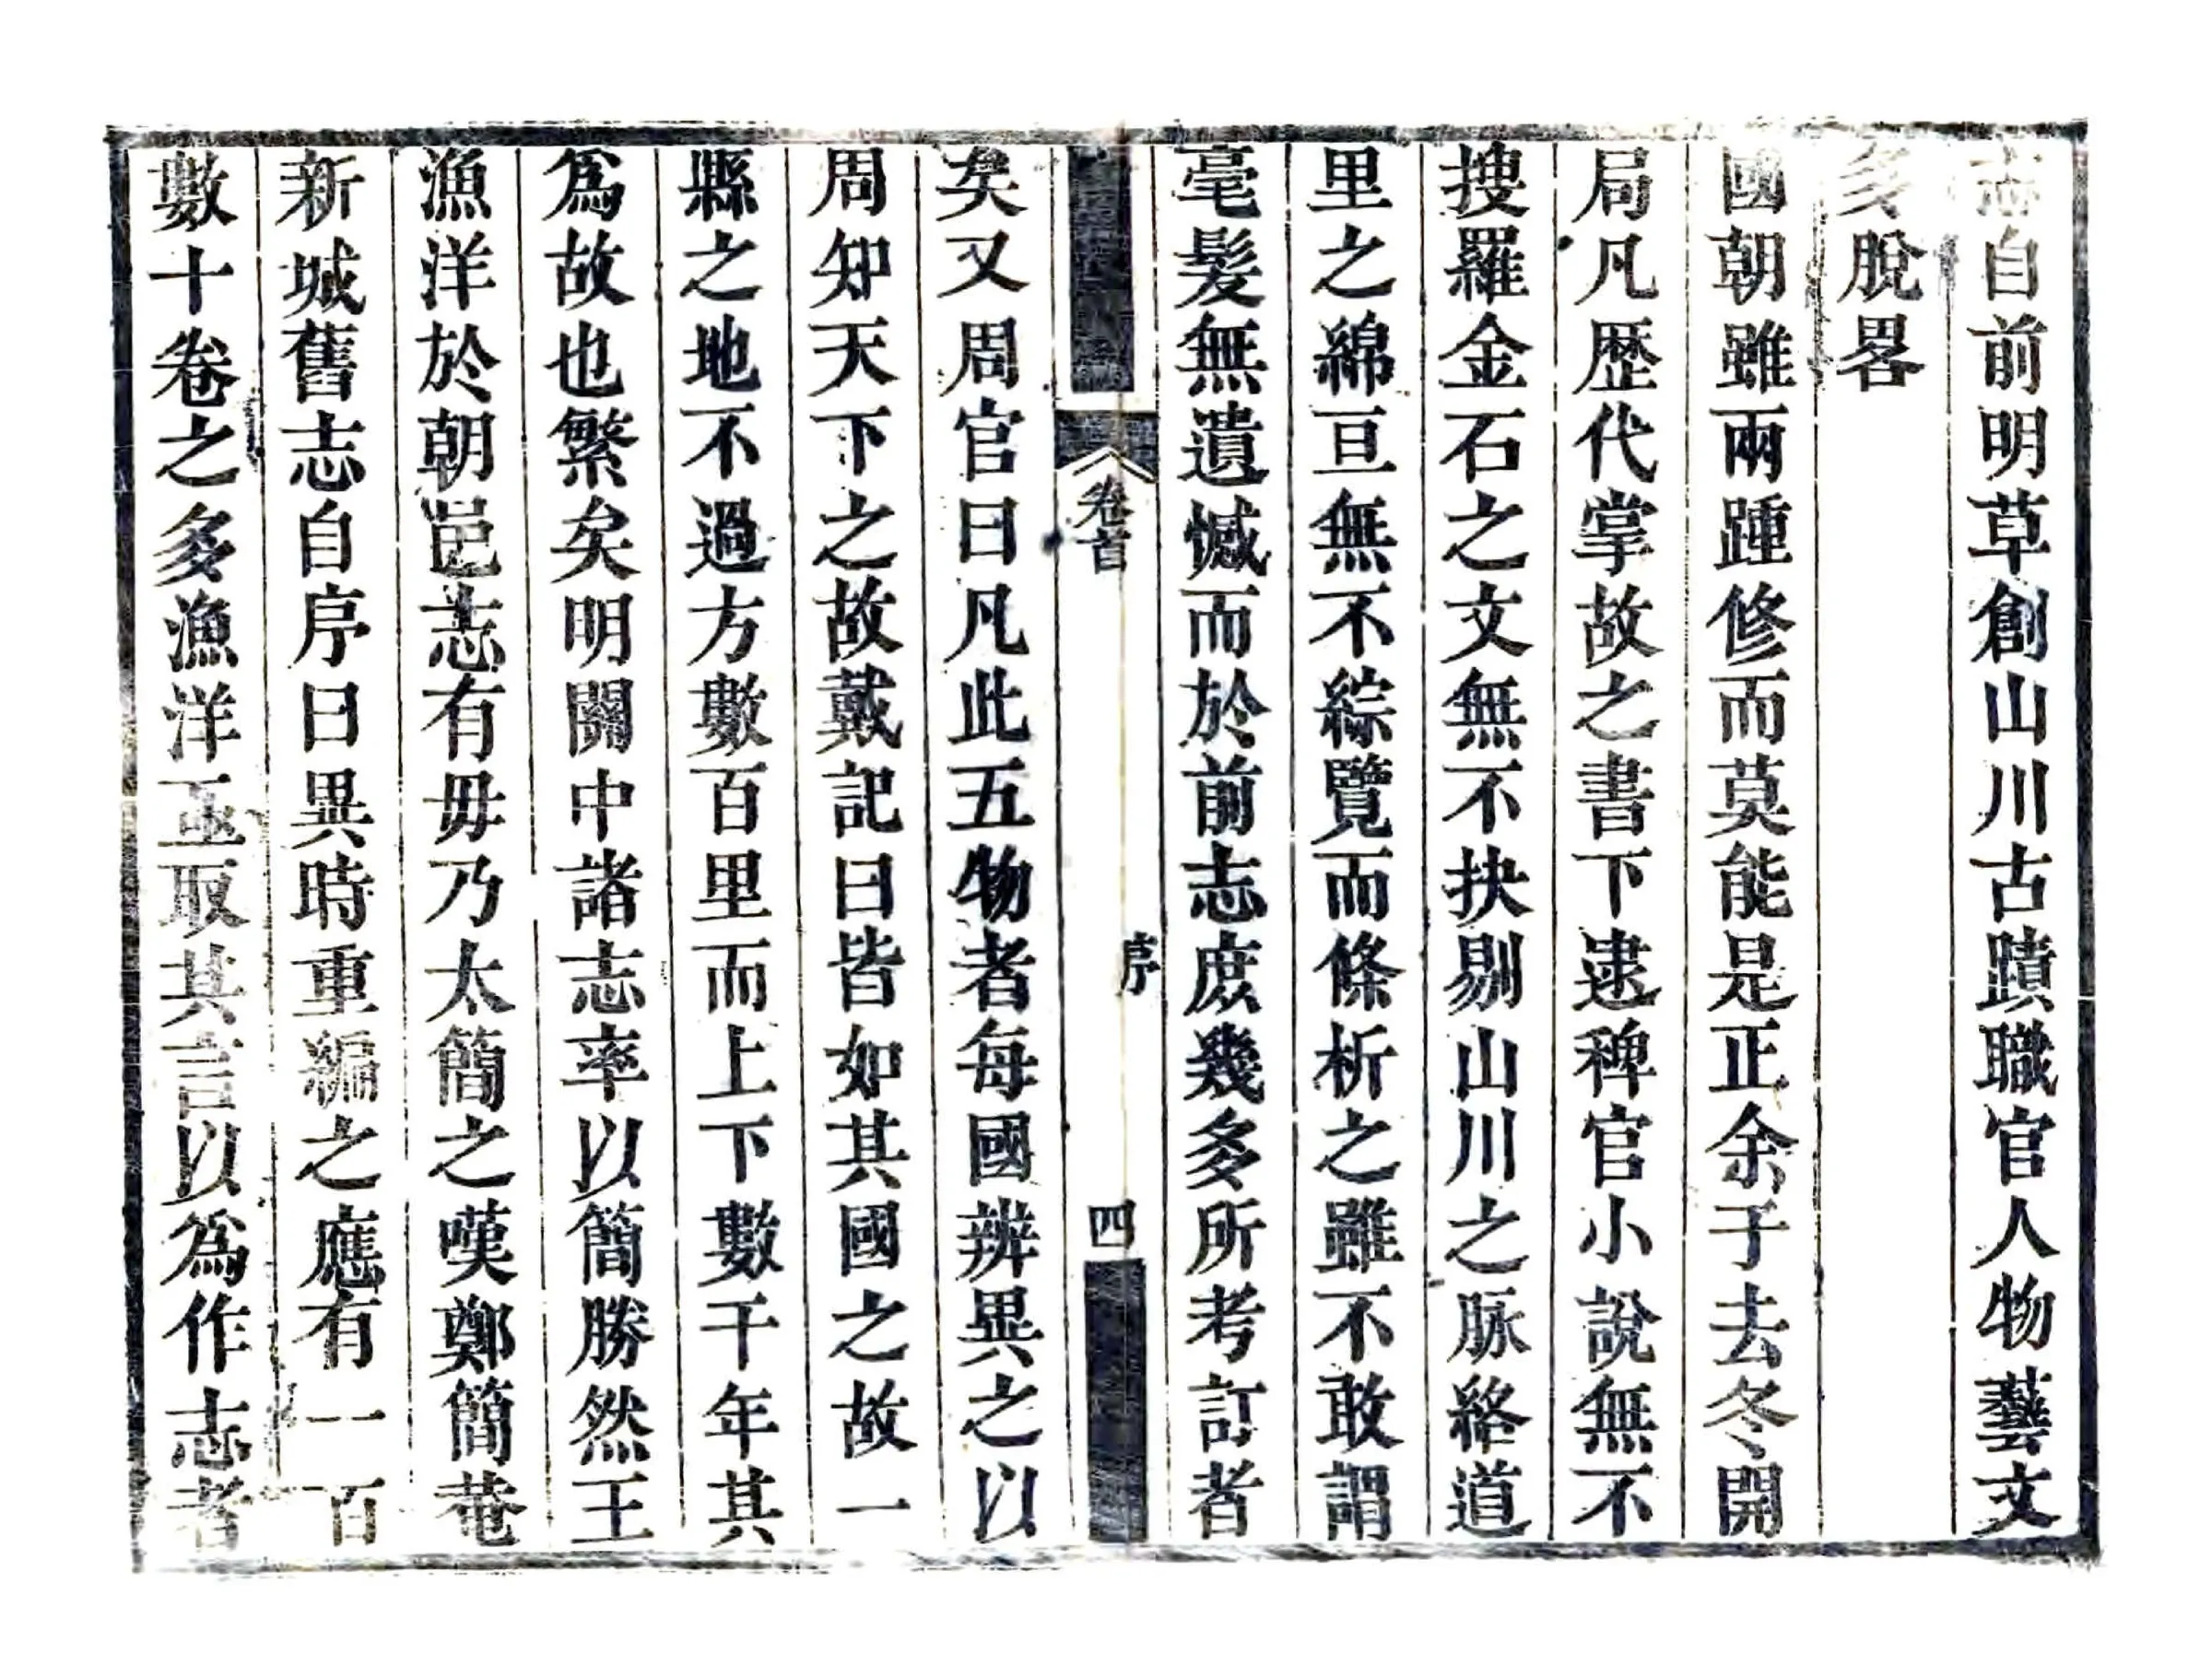 志自前明草創山川古蹟職官人物藝文
多脫畧
國朝雖兩踵修而莫能是正余于去冬開
局凡歷代掌故之書下逮稗官小說無不
搜羅金石之文無不抉剔山川之脉絡道
里之綿亘無不綜覽而條析之雖不敢謂
毫髮無遺憾而於前志庶幾多所考訂者
卷首
序
四
矣又周官曰凡此五物者每國辨異之以
周知天下之故戴記曰皆如其國之故一
縣之地不過方數百里而上下數千年其
爲故也繁矣明關中諸志率以簡勝然王
漁洋於朝邑志有毋乃太簡之嘆鄭簡菴
新城舊志自序曰異時重編之應有一百
數十卷之多漁洋亟取其言以爲作志者